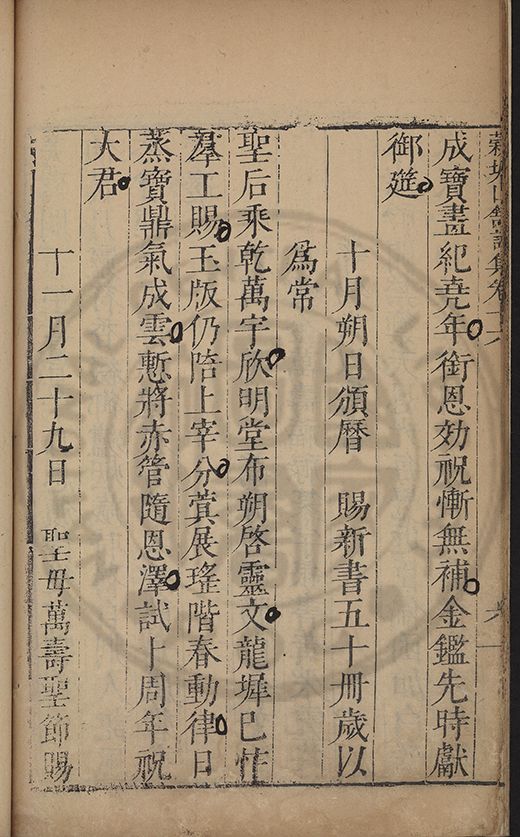 穀城山館詩集卷
成寶畫紀堯年銜恩効祝慚無補金鑑先時獻
御筵
十月朔日頒曆　賜新書五十冊歲以
爲常
聖后乘乾萬宇欣明堂布朔啓靈文龍墀已忭
羣工賜玉版仍陪上宰分蓂展瑤階春動律日
蒸寶鼎氣成雲慙將赤管隨恩澤試卜周年祝
大君
十一月二十九日　聖母萬壽聖節賜